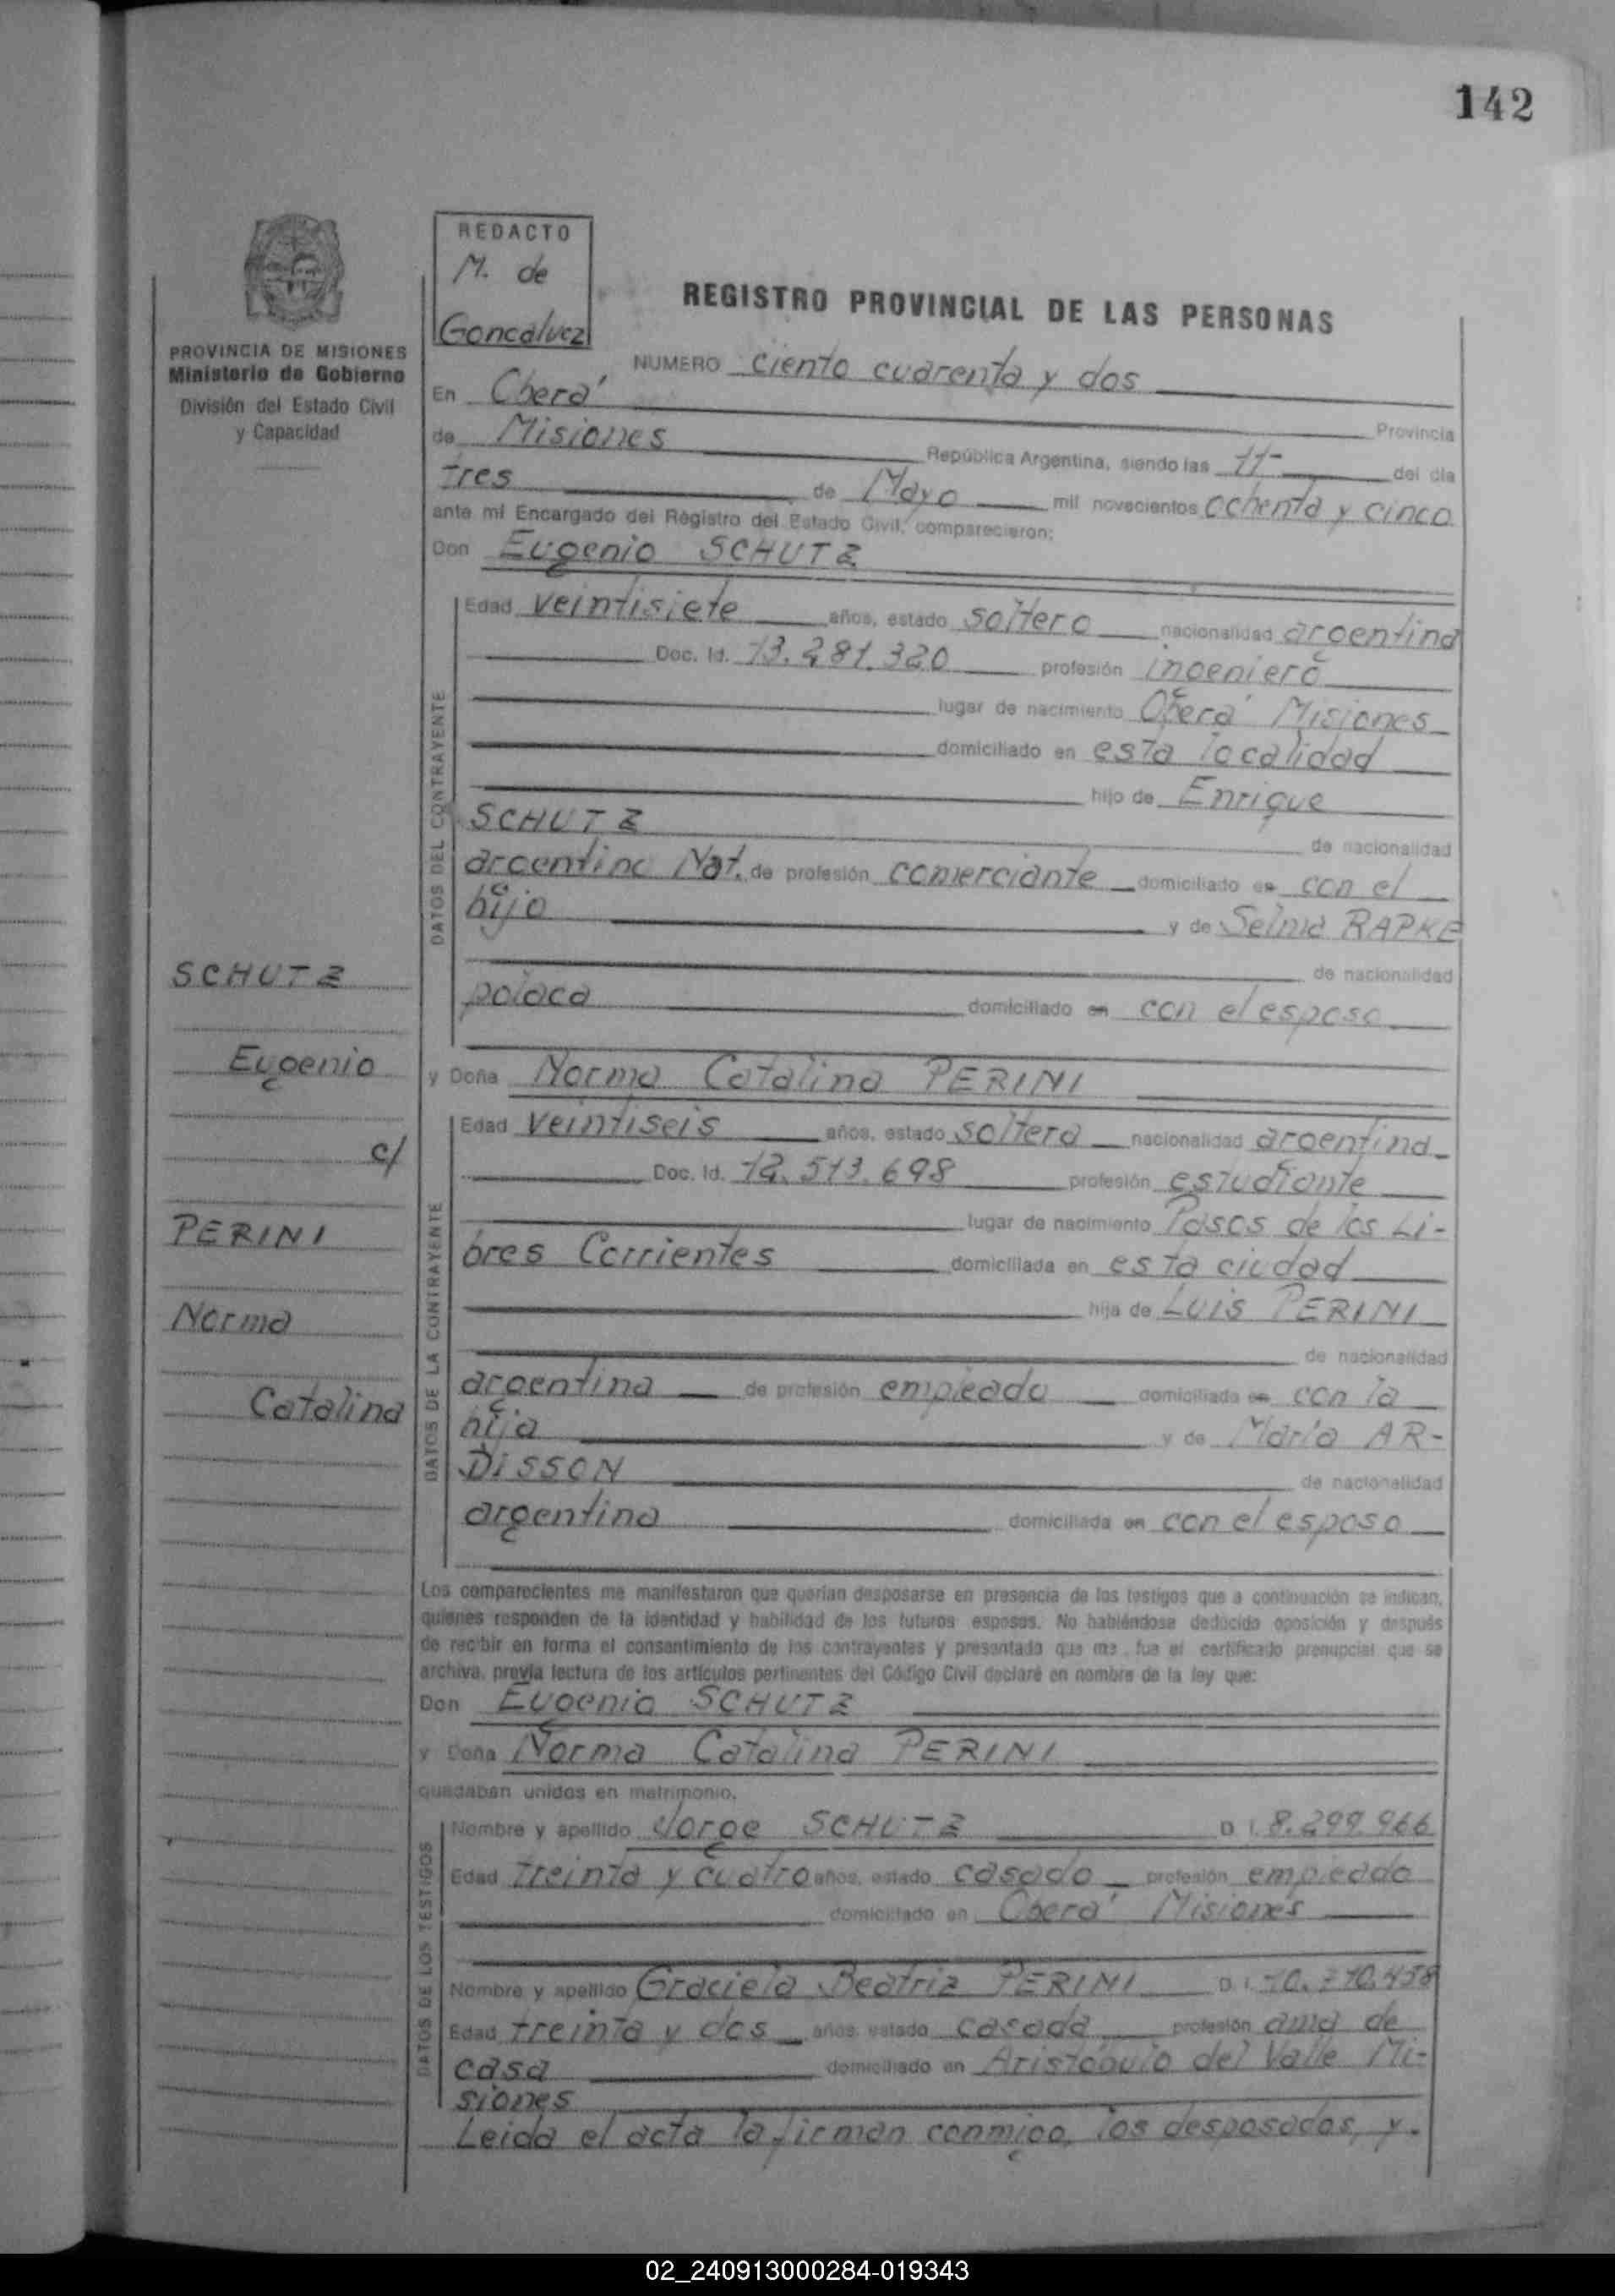 142
REDACTO
M. de
Goncalvez
REGISTRO PROVINCIAL DE LAS PERSONAS
PROVINCIA DE MISIONES
Ministerio de Gobierno
División del Estado Civil
y Capacidad
NUMERO ciento cuarenta y dos
En Oberá Provincia
de Misiones República Argentina, siendo las 11- del día
tres de Mayo mil novecientos ochenta y cinco
ante mí Encargado del Registro del Estado Civil, comparecieron:
Don Eugenio SCHUTZ
DATOS DEL CONTRAYENTE
Edad veintisiete años, estado soltero nacionalidad argentina
Doc. Id. 13.281.320 profesión ingeniero
lugar de nacimiento Oberá Misiones
domiciliado en esta localidad
hijo de Enrique
SCHUTZ de nacionalidad
argentino Nat. de profesión comerciante domiciliado en con el
hijo y de Selma RAPKE
de nacionalidad
polaca domiciliado en con el esposo
SCHUTZ
Eugenio
c/
PERINI
Norma
Catalina
y Doña Norma Catalina PERINI
DATOS DE LA CONTRAYENTE
Edad veintiseis años, estado soltera nacionalidad argentina
Doc. Id. 12.513.698 profesión estudiante
lugar de nacimiento Pasos de los Li-
bres Corrientes domiciliada en esta ciudad
hija de Luis PERINI
de nacionalidad
argentina de profesión empleado domiciliado en con la
hija y de María AR-
DISSON de nacionalidad
argentina domiciliada en con el esposo
Los comparecientes me manifestaron que querían desposarse en presencia de los testigos que a continuación se indican,
quienes responden de la identidad y habilidad de los futuros esposos. No habiéndose deducido oposición y después
de recibir en forma el consentimiento de los contrayentes y presentado que me fue el certificado prenupcial que se
archiva, previa lectura de los artículos pertinentes del Código Civil declaré en nombre de la ley que:
Don Eugenio SCHUTZ
y Doña Norma Catalina PERINI
quedaban unidos en matrimonio.
DATOS DE LOS TESTIGOS
Nombre y apellido Jorge SCHUTZ D.I. 8.299.966
Edad treinta y cuatro años, estado casado profesión empleado
domiciliado en Oberá Misiones
Nombre y apellido Graciela Beatriz PERINI D.I.
Edad treinta y dos años, estado casada profesión ama de
casa domiciliado en Aristóbulo del Valle Mi-
siones
Leida el acta la firman conmigo, los desposados, y
02_240913000284-019343